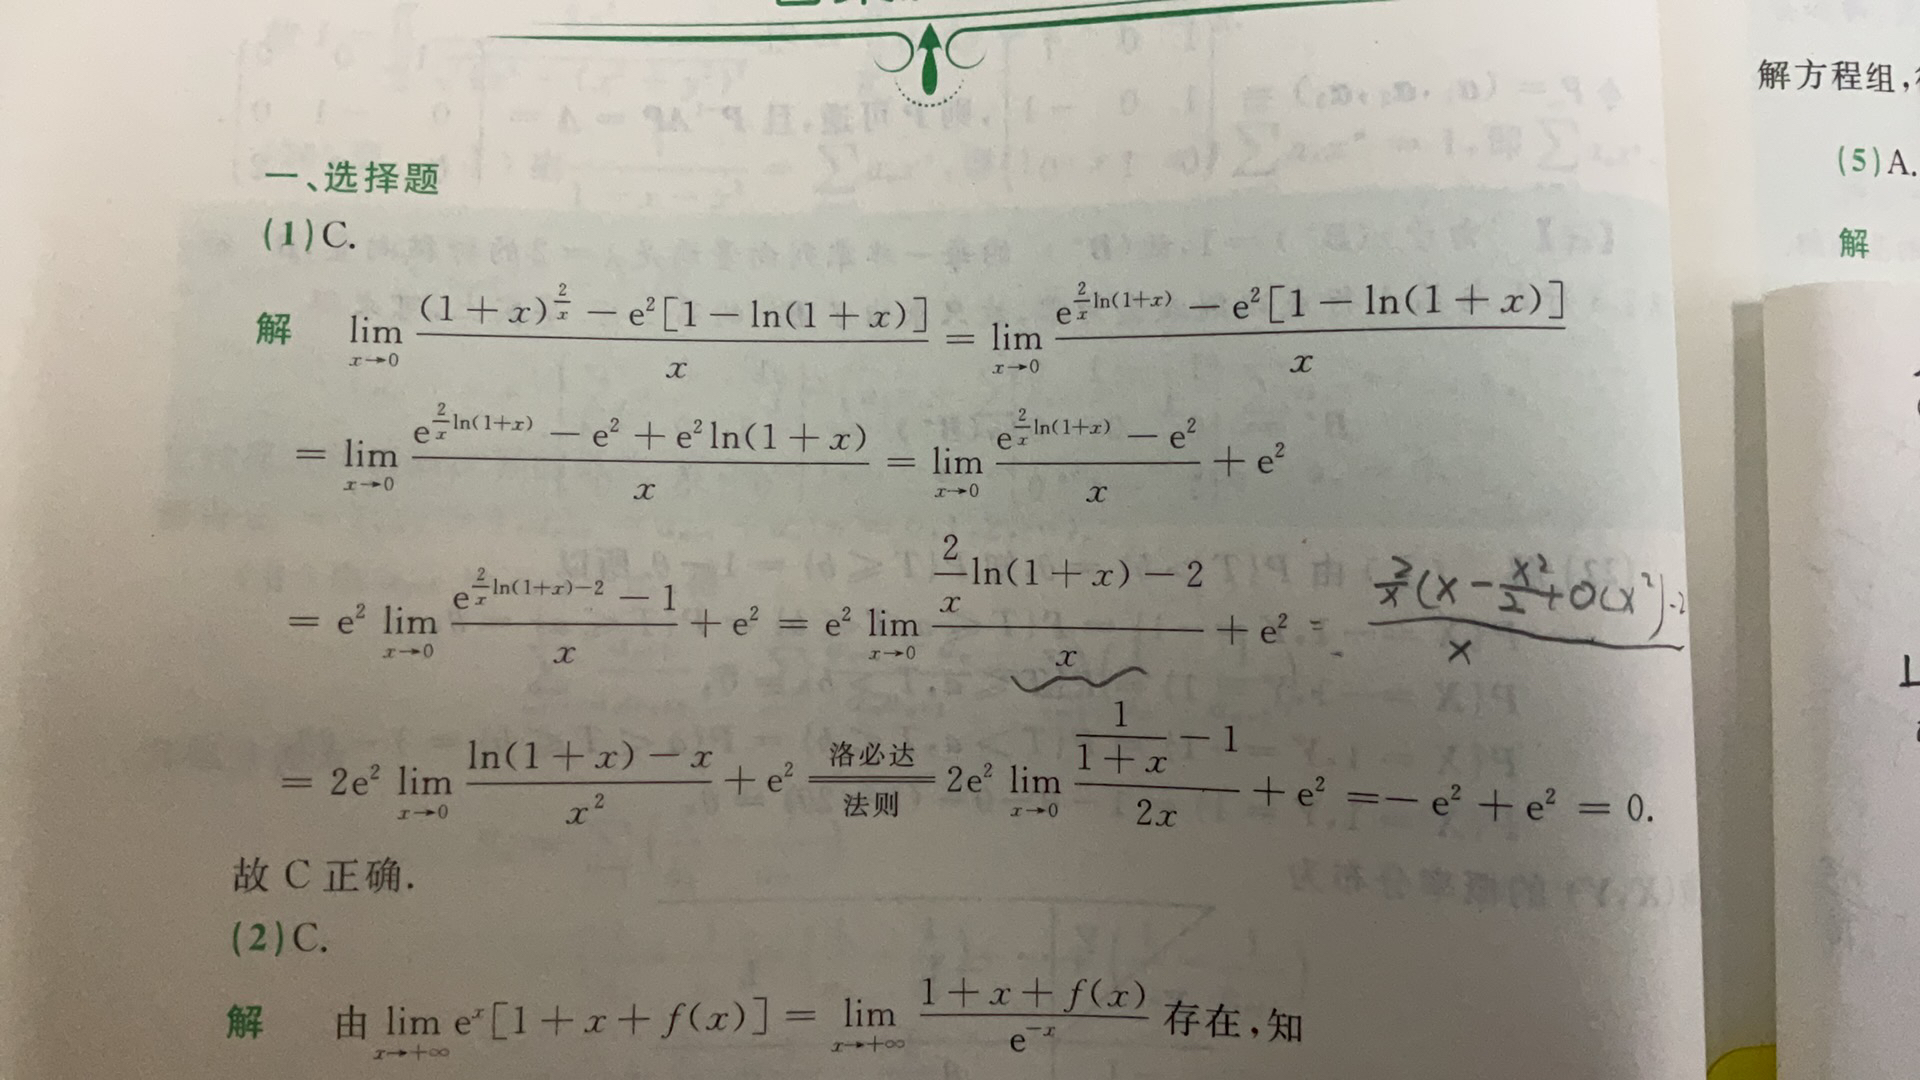 一、选择题
(1)C.
解 lim_{x→0} \frac{(1+x)^{\frac{2}{x}} - e^2[1-ln(1+x)]}{x} = lim_{x→0} \frac{e^{\frac{2}{x}ln(1+x)} - e^2[1-ln(1+x)]}{x}
= lim_{x→0} \frac{e^{\frac{2}{x}ln(1+x)} - e^2 + e^2 ln(1+x)}{x} = lim_{x→0} \frac{e^{\frac{2}{x}ln(1+x)} - e^2}{x} + e^2
= e^2 lim_{x→0} \frac{e^{\frac{2}{x}ln(1+x)-2} - 1}{x} + e^2 = e^2 lim_{x→0} \frac{\frac{2}{x}ln(1+x) - 2}{x} + e^2 = \frac{\frac{2}{x}(x - \frac{x^2}{2} + o(x^2)) - 2}{x}
= 2e^2 lim_{x→0} \frac{ln(1+x) - x}{x^2} + e^2 洛必达法则 2e^2 lim_{x→0} \frac{\frac{1}{1+x} - 1}{2x} + e^2 = -e^2 + e^2 = 0.
故 C 正确.
(2)C.
解 由 lim_{x→+∞} e^x[1+x+f(x)] = lim_{x→+∞} \frac{1+x+f(x)}{e^{-x}} 存在,知
解方程组,
(5)A.
解